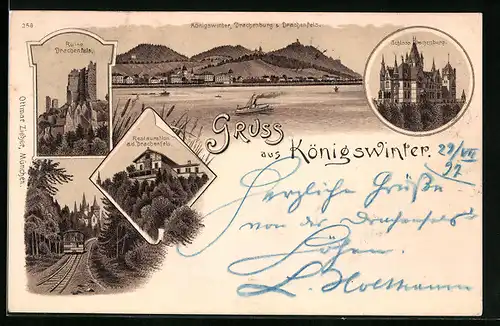 358
Königswinter, Drachenburg u. Drachenfels.
Ruine
Drachenfels.
Schloss Drachenburg.
Restauration
a.d. Drachenfels.
Ottmar Zieher, München.
Gruss
aus Königswinter.
29/VII
97
Herzliche Grüße
von der Drachenfels's
Höhen.